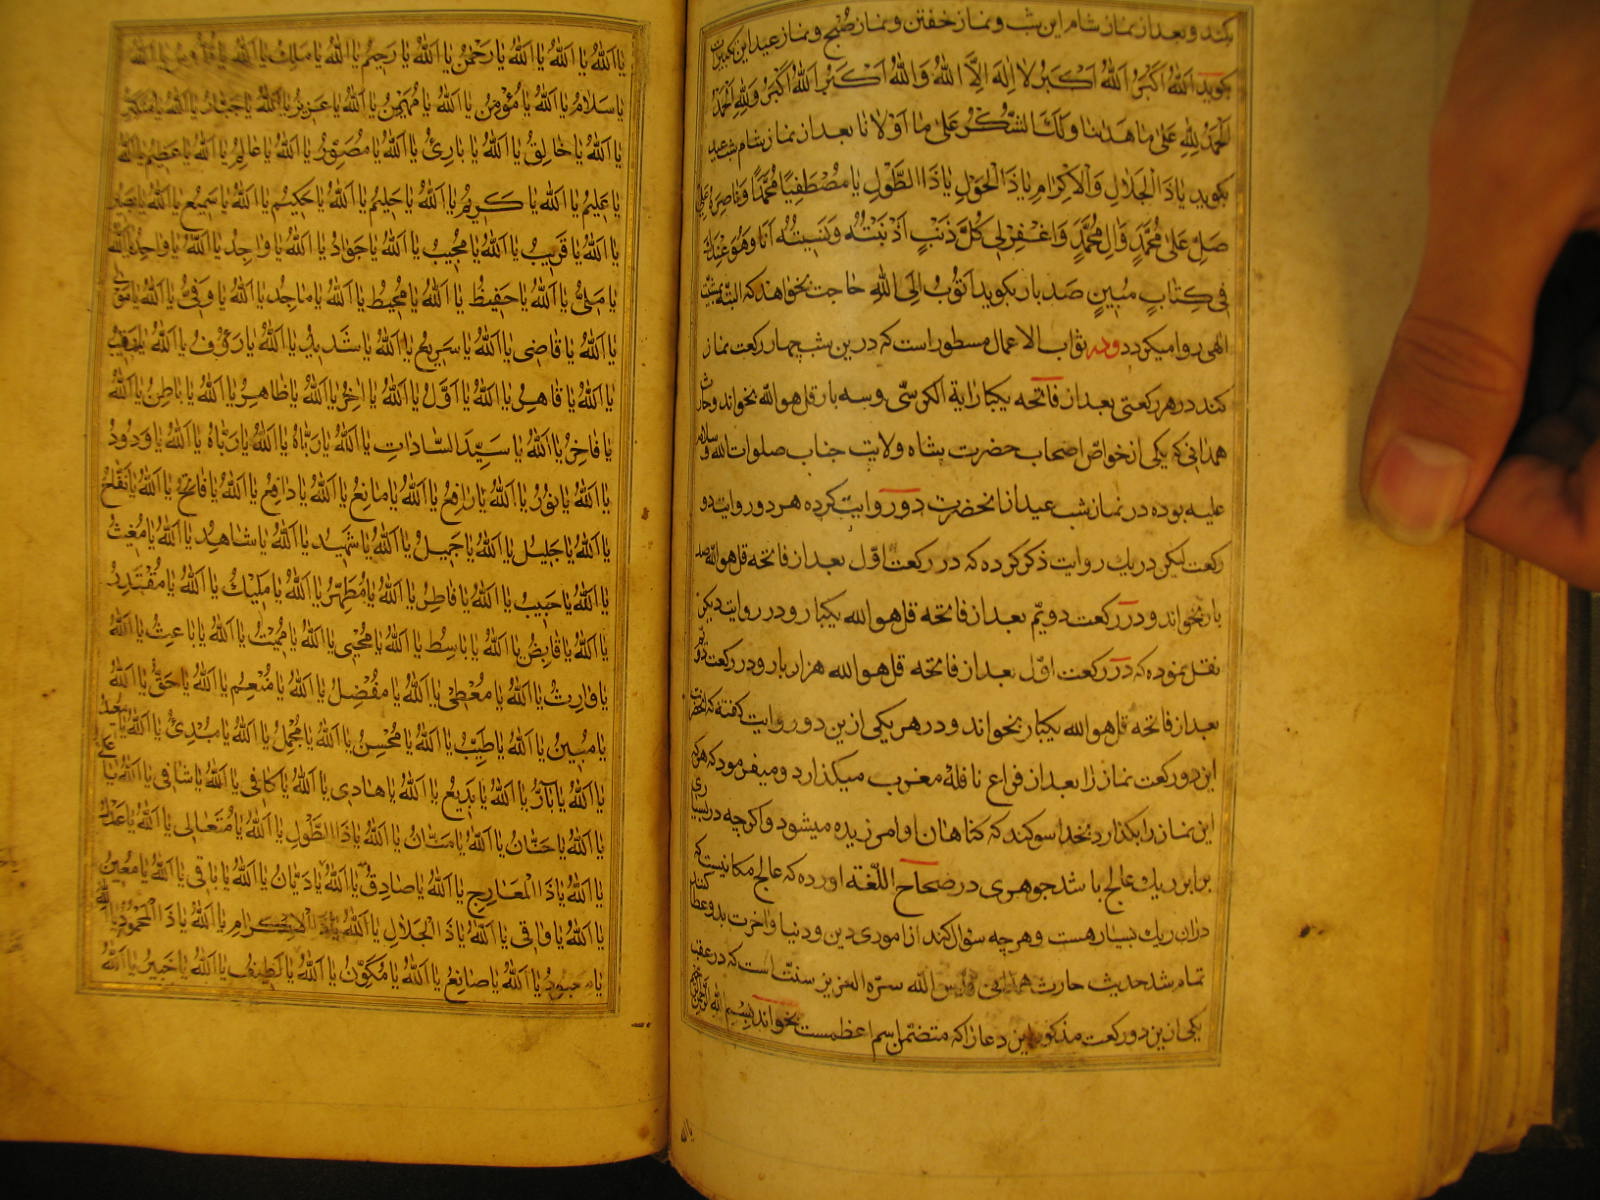 بکند و بعد از نماز شام این شب و نماز خفتن و نماز صُبح و نماز عید این تکبیرات
بکوید اَللهُ اَکبَرُ اَللهُ اَکبَرُ لا اِلهَ اِلَّا اللهُ وَاللهُ اَکبَرُ اَللهُ اَکبَرُ وَلِلّهِ الحَمدُ
اَلحَمدُ لِلّهِ عَلی ما هَدینا وَلَهُ الشُّکرُ عَلی ما اَولانا بعد از نماز شام شب عید
بکوید یا ذَا الجَلالِ وَالاِکرامِ یا ذَا الحَولِ یا ذَا الطَّولِ یا مُصطَفِیًا مُحَمَّدًا وَناصِرَهُ
صَلِّ عَلی مُحَمَّدٍ وَآلِ مُحَمَّدٍ وَاغفِر لی کُلَّ ذَنبٍ اَذنَبتُهُ وَنَسیتُهُ اَنَا وَهُوَ عِندَكَ
فی کِتابٍ مُبینٍ صد بار بکوید اَتُوبُ اِلَی اللهِ حاجت بخواهد که البته بمشیت
الهی روا میکردد ودر ثواب الاعمال مسطور است که درین شب چهار رکعت نماز
کند در هر رکعتی بعد از فاتحه یکبار ایة الکرسی و سه بار قل هو الله بخواند و حارث
همدانی که یکی از خواصّ اصحاب حضرت شاه ولایت جناب صلوات الله وسلامه
علیه بوده در نماز شب عید از انحضرت دو روایت کرده هر دو روایت دو
رکعت لیکن در یك روایت ذکر کرده که در رکعت اوّل بعد از فاتحه قل هو الله صد
بار بخواند و در رکعت دویّم بعد از فاتحه قل هو الله یکبار و در روایت دیکر
نقل نموده که در رکعت اوّل بعد از فاتحه قل هو الله هزار بار و در رکعت دویّم
بعد از فاتحه قل هو الله یکبار بخواند و در هر یکی ازین دو روایت کفته که انحضرت
این دو رکعت نماز را بعد از فراغ نافلهٔ مغرب میکذارد و میفرمود که هر که
این نماز را بکذارد بخدا سوکند که کناهان او امرزیده میشود و اکرچه در بسیاری
برابر ریك عالج باشد جوهری در صحاح اللّغه اورده که عالج مکانیست که
دران ریك بسیار هست و هرچه سؤال کند از امور دین و دنیا و اخرت بدو عطا کنند
تمام شد حدیث حارث همدانی قدّس الله سرّه العزیز سنّت است که در عقب
یکی ازین دو رکعت مذکور این دعا را که متضمّن اسم اعظمست بخواند بِسمِ اللهِ الرَّحمنِ الرَّحیمِ
یا الله
یا اَللهُ یا اَللهُ یا اَللهُ یا رَحمنُ یا اَللهُ یا رَحیمُ یا اَللهُ یا مَلِكُ یا اَللهُ یا قُدُّوسُ یا اَللهُ
یا سَلامُ یا اَللهُ یا مُؤمِنُ یا اَللهُ یا مُهَیمِنُ یا اَللهُ یا عَزیزُ یا اَللهُ یا جَبّارُ یا اَللهُ یا مُتَکَبِّرُ
یا اَللهُ یا خالِقُ یا اَللهُ یا بارِئُ یا اَللهُ یا مُصَوِّرُ یا اَللهُ یا عالِمُ یا اَللهُ یا عَظیمُ یا اَللهُ
یا عَلیمُ یا اَللهُ یا کَریمُ یا اَللهُ یا حَلیمُ یا اَللهُ یا حَکیمُ یا اَللهُ یا سَمیعُ یا اَللهُ یا بَصیرُ
یا اَللهُ یا قَریبُ یا اَللهُ یا مُجیبُ یا اَللهُ یا جَوادُ یا اَللهُ یا واجِدُ یا اَللهُ یا واحِدُ یا اَللهُ
یا مَلِیُّ یا اَللهُ یا حَفیظُ یا اَللهُ یا مُحیطُ یا اَللهُ یا ماجِدُ یا اَللهُ یا وَفِیُّ یا اَللهُ یا
یا اَللهُ یا قاضی یا اَللهُ یا سَریعُ یا اَللهُ یا شَدیدُ یا اَللهُ یا رَؤُفُ یا اَللهُ یا رَقیبُ
یا اَللهُ یا قاهِرُ یا اَللهُ یا اَوَّلُ یا اَللهُ یا اخِرُ یا اَللهُ یا ظاهِرُ یا اَللهُ یا باطِنُ یا اَللهُ
یا فاخِرُ یا اَللهُ یا سَیِّدَ السّاداتِ یا اَللهُ یا رَبّاهُ یا اَللهُ یا رَبّاهُ یا اَللهُ یا وَدُودُ
یا اَللهُ یا نُورُ یا اَللهُ یا رافِعُ یا اَللهُ یا مانِعُ یا اَللهُ یا دافِعُ یا اَللهُ یا فاتِحُ یا اَللهُ یا نَفّاحُ
یا اَللهُ یا جَلیلُ یا اَللهُ یا جَمیلُ یا اَللهُ یا شَهیدُ یا اَللهُ یا شاهِدُ یا اَللهُ یا مُغیثُ
یا اَللهُ یا حَبیبُ یا اَللهُ یا فاطِرُ یا اَللهُ یا مُطَهِّرُ یا اَللهُ یا مَلیكُ یا اَللهُ یا مُقتَدِرُ
یا اَللهُ یا قابِضُ یا اَللهُ یا باسِطُ یا اَللهُ یا مُحیی یا اَللهُ یا مُمیتُ یا اَللهُ یا باعِثُ یا اَللهُ
یا وارِثُ یا اَللهُ یا مُعطی یا اَللهُ یا مُفضِلُ یا اَللهُ یا مُنعِمُ یا اَللهُ یا حَقُّ یا اَللهُ
یا مُبینُ یا اَللهُ یا طَیِّبُ یا اَللهُ یا مُحسِنُ یا اَللهُ یا مُجمِلُ یا اَللهُ یا مُبدِئُ یا اَللهُ یا مُعیدُ
یا اَللهُ یا بارُّ یا اَللهُ یا بَدیعُ یا اَللهُ یا هادی یا اَللهُ یا کافی یا اَللهُ یا شافی یا اَللهُ یا عَلِیُّ
یا اَللهُ یا حَنّانُ یا اَللهُ یا مَنّانُ یا اَللهُ یا ذَا الطَّولِ یا اَللهُ یا مُتَعالی یا اَللهُ یا عَدلُ
یا اَللهُ یا ذَا المَعارِجِ یا اَللهُ یا صادِقُ یا اَللهُ یا دَیّانُ یا اَللهُ یا باقی یا اَللهُ یا مُعینُ
یا اَللهُ یا واقی یا اَللهُ یا ذَا الجَلالِ یا اَللهُ یا ذَا الاِکرامِ یا اَللهُ یا ذَا المَحمُودُ یا اَللهُ
یا مَعبُودُ یا اَللهُ یا صانِعُ یا اَللهُ یا مُکَوِّنُ یا اَللهُ یا لَطیفُ یا اَللهُ یا خَبیرُ یا اَللهُ